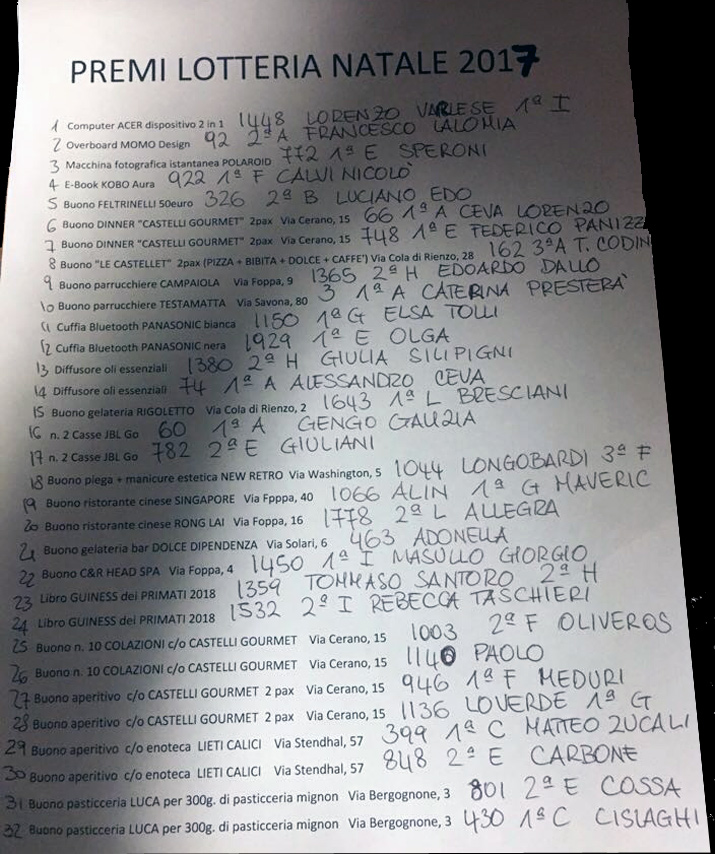 PREMI LOTTERIA NATALE 2017
1 Computer ACER dispositivo 2 in 1 1448 LORENZO VARLESE 1ª I
2 Overboard MOMO Design 92 2ª A FRANCESCO IALOMIA
3 Macchina fotografica istantanea POLAROID 772 1ª E SPERONI
4 E-Book KOBO Aura 922 1ª F CALVI NICOLÒ
5 Buono FELTRINELLI 50euro 326 2ª B LUCIANO EDO
6 Buono DINNER "CASTELLI GOURMET" 2pax Via Cerano, 15 66 1ª A CEVA LORENZO
7 Buono DINNER "CASTELLI GOURMET" 2pax Via Cerano, 15 748 1ª E FEDERICO PANIZZ
8 Buono "LE CASTELLET" 2pax (PIZZA + BIBITA + DOLCE + CAFFE') Via Cola di Rienzo, 28 162 3ª A T. CODIN
9 Buono parrucchiere CAMPAIOLA Via Foppa, 9 1365 2ª H EDOARDO DALLO
10 Buono parrucchiere TESTAMATTA Via Savona, 80 3 1ª A CATERINA PRESTERÀ
11 Cuffia Bluetooth PANASONIC bianca 1150 1ª G ELSA TOLLI
12 Cuffia Bluetooth PANASONIC nera 1929 1ª E OLGA
13 Diffusore oli essenziali 1380 2ª H GIULIA SILIPIGNI
14 Diffusore oli essenziali 74 1ª A ALESSANDRO CEVA
15 Buono gelateria RIGOLETTO Via Cola di Rienzo, 2 1643 1ª L BRESCIANI
16 n. 2 Casse JBL Go 60 1ª A GENGO GAUZIA
17 n. 2 Casse JBL Go 782 2ª E GIULIANI
18 Buono piega + manicure estetica NEW RETRO Via Washington, 5 1044 LONGOBARDI 3ª F
19 Buono ristorante cinese SINGAPORE Via Fpppa, 40 1066 ALIN 1ª G MAVERIC
20 Buono ristorante cinese RONG LAI Via Foppa, 16 1778 2ª L ALLEGRA
21 Buono gelateria bar DOLCE DIPENDENZA Via Solari, 6 463 ADONELLA
22 Buono C&R HEAD SPA Via Foppa, 4 1450 1ª I MASULLO GIORGIO
23 Libro GUINESS dei PRIMATI 2018 1359 TOMMASO SANTORO 2ª H
24 Libro GUINESS dei PRIMATI 2018 1532 2ª I REBECCA TASCHIERI
25 Buono n. 10 COLAZIONI c/o CASTELLI GOURMET Via Cerano, 15 1003 2ª F OLIVEROS
26 Buono n. 10 COLAZIONI c/o CASTELLI GOURMET Via Cerano, 15 1140 PAOLO
27 Buono aperitivo c/o CASTELLI GOURMET 2 pax Via Cerano, 15 946 1ª F MEDURI
28 Buono aperitivo c/o CASTELLI GOURMET 2 pax Via Cerano, 15 1136 LOVERDE 1ª G
29 Buono aperitivo c/o enoteca LIETI CALICI Via Stendhal, 57 399 1ª C MATTEO ZUCALI
30 Buono aperitivo c/o enoteca LIETI CALICI Via Stendhal, 57 848 2ª E CARBONE
31 Buono pasticceria LUCA per 300g. di pasticceria mignon Via Bergognone, 3 801 2ª E COSSA
32 Buono pasticceria LUCA per 300g. di pasticceria mignon Via Bergognone, 3 430 1ª C CISLAGHI